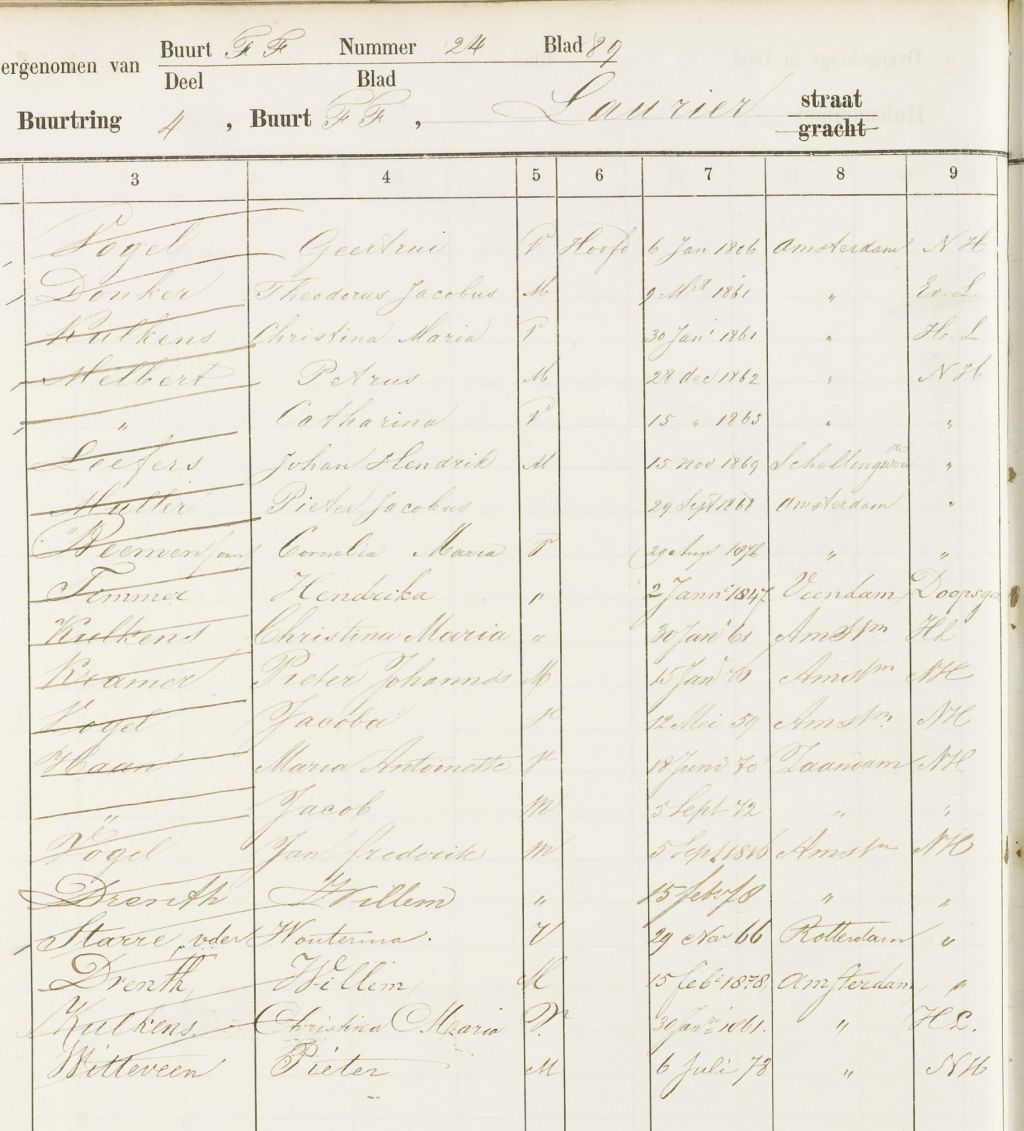 Buurt FF Nummer 24 Blad 89
ergenomen van
Deel Blad
Buurtring 4, Buurt FF, Laurier straat
gracht
3 4 5 6 7 8 9
Vogel Geertrui V Hoofd 6 Jan 1806 Amsterdam N H
Donker Theodorus Jacobus M 9 1861 " Ev. L.
Kulkens Christina Maria V 30 Jan 1861 " H. L
Melbert Petrus M 28 dec 1862 " N H
" Catharina V 15 " 1865 " "
Leefers Johan Hendrik M 15 nov 1869 Schellingwou "
Muller Pieter Jacobus 29 Sept Amsterdam "
Cornelia Maria V 29 Aug 1876 " "
Timmer Hendrika " 2 Jann 1847 Veendam Doopsge
Kulkens Christina Maria " 30 Jan 61 Amstm HL
Kramer Pieter Johannes M 15 Jan Amstm NH
Vogel Jacoba V 12 Mei 59 Amstm NH
Haan Maria Antoinette V 18 Juni 70 Zaandam NH
" Jacob M 5 Sept 72 " "
Vogel Jan frederik M 5 Sept 1816 Amstm NH
Drenth Willem " 15 feb 78 " "
Starre, vder Wouterina. V 29 Nov 66 Rotterdam "
Drenth, Willem M 15 feb 1878 Amsterdam, "
Kulkens. Christina Maria V. 30 Jan 1861. " H L.
Witteveen Pieter M 6 Juli 78 " NH